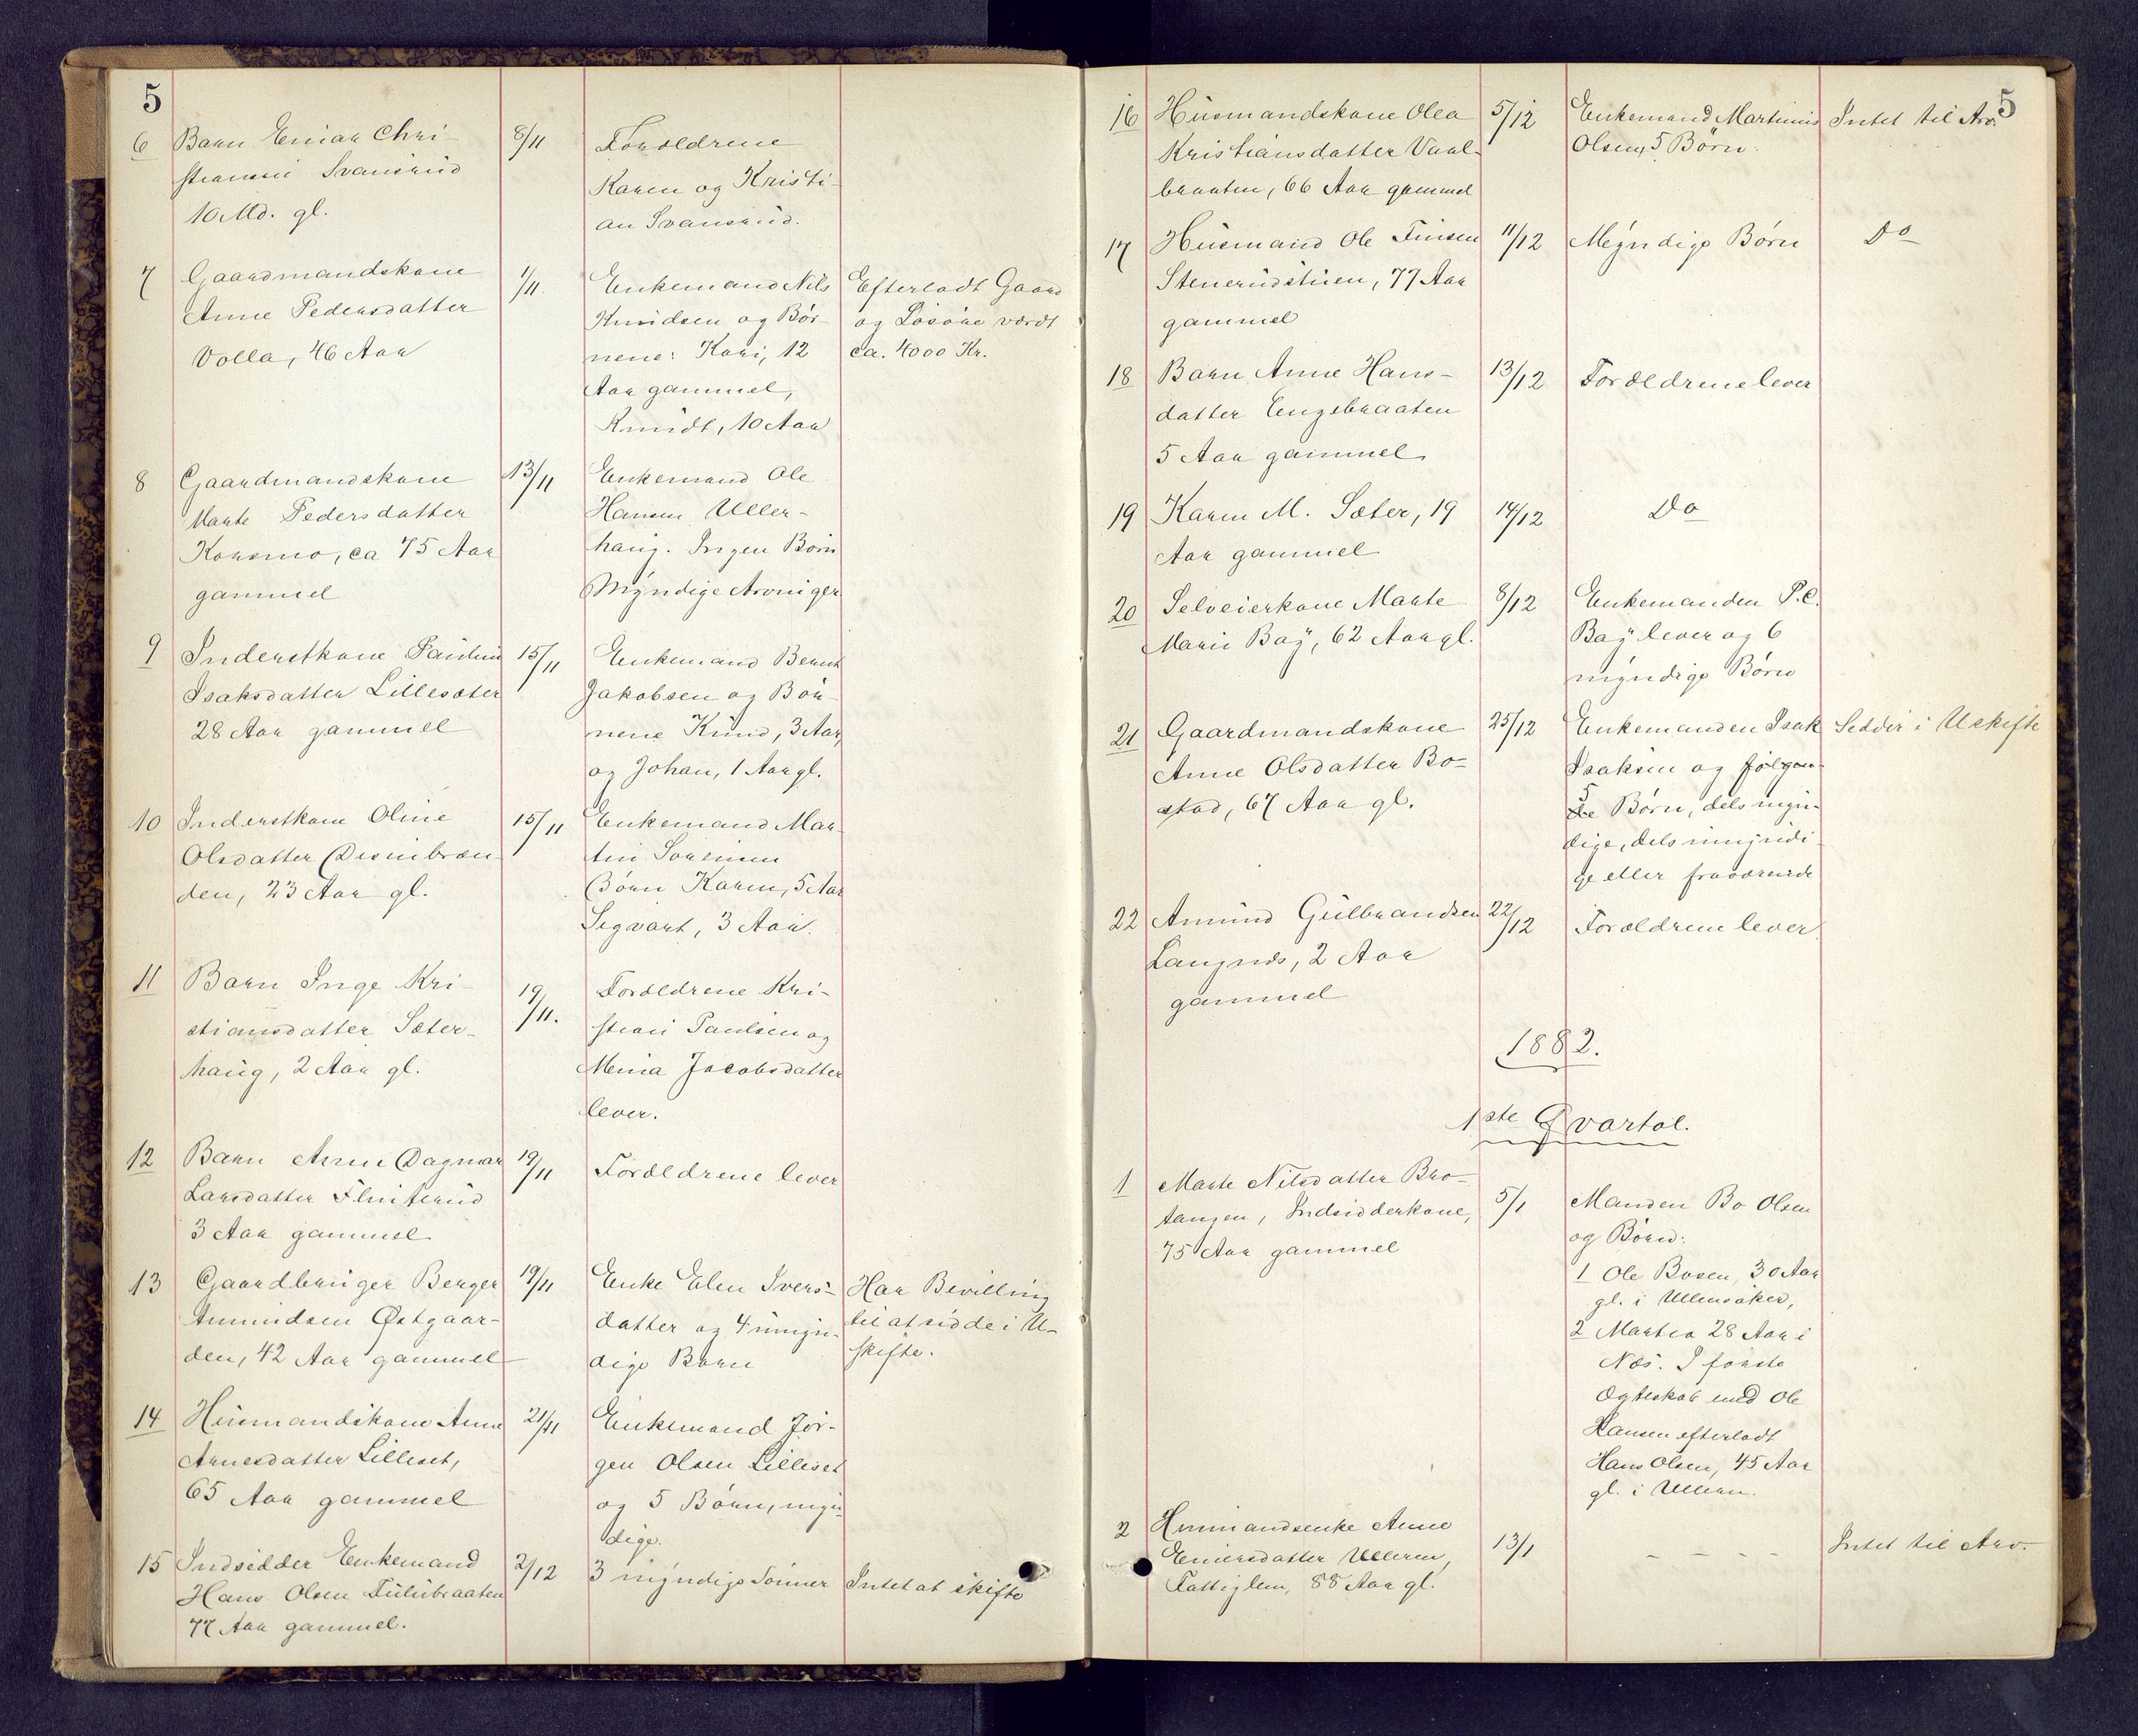 5
6 Barn Einar Chri-
stiansen Svansrud
10 Md. gl.
8/11
Forældrene
Karen og Kristi-
an Svansrud.
7 Gaardmandskone
Anne Pedersdatter
Volla, 46 Aar
1/11
Enkemand Nils
Knudsen og Bør-
nene: Kari, 12
Aar gammel,
Knudt, 10 Aar
Efterladt Gaard
og Løsöre værdt
ca. 4000 Kr.
8 Gaardmandskone
Marte Pedersdatter
Korsmo, ca 75 Aar
gammel
13/11
Enkemand Ole
Hansen Uller-
haug. Ingen Börn
Myndige Arvinger
9 Inderstkone Pauline
Isaksdatter Lillesæter
28 Aar gammel
15/11
Enkemand Bernt
Jakobsen og Bör-
nene Knud, 3 Aar,
og Johan, 1 Aar gl.
10 Inderstkone Oline
Olsdatter
den, 23 Aar gl.
15/11
Enkemand Mar-
tin Sörensen
Börn Karen, 5 Aar
Segvart, 3 Aar.
11 Barn Inge Kri-
stiansdatter Sæter-
haug, 2 Aar gl.
19/11.
Forældrene Kri-
stian Paulsen og
Menia Jacobsdatter
lever.
12 Barn Anne Dagmar
Larsdatter Flinterud
3 Aar gammel
19/11
Forældrene lever
13 Gaardbruger Berger
Amundsen Østgaar-
den, 42 Aar gammel
19/11
Enke Elen Ivers-
datter og 4 umyn-
dige Børn
Har Bevilling
til at sidde i U-
skifte.
14 Husmandskone Anne
Arnesdatter Lilleset,
65 Aar gammel
21/11
Enkemand Jör-
gen Olsen Lilleset
og 5 Börn, myn-
dige.
15 Indsidder Enkemand
Hans Olsen Fulubraaten
77 Aar gammel.
2/12
3 myndige Sönner
Intet at skifte
5
16 Husmandskone Olea
Kristiansdatter Vaal-
braaten, 66 Aar gammel
5/12
Enkemand Martinus
Olsen, 5 Börn.
Intet til Arv.
17 Husmand Ole Finsen
Stenerudstuen, 77 Aar
gammel
11/12
Myndige Börn
Do
18 Barn Anne Hans-
datter Engebraaten
5 Aar gammel
13/12
Forældrene lever
19 Karen M. Sæter, 19
Aar gammel
14/12
Do
20 Selveierkone Marte
Marie Bay, 62 Aar gl.
8/12
Enkemanden P.C.
Bay lever og 6
myndige Börn
21 Gaardmandskone
Anne Olsdatter Bo-
stad, 67 Aar gl.
25/12
Enkemanden Isak
Isaksen og følgen-
5
de Børn, dels myn-
dige, dels umyndi-
ge eller fraværende
Sidder i Uskifte
22 Amund Gulbrandsen
Langnæs, 2 Aar
gammel
22/12
Forældrene lever
1882.
1ste Qvartal.
1 Marte Nilsdatter Bro-
tangen, Indsidderkone,
75 Aar gammel
5/1
Manden Bo Olsen
og Börn:
1 Ole Bosen, 30 Aar
gl. i Ullensaker,
2 Martea 28 Aar i
Næs. I første
Ægteskab med Ole
Hansen efterladt
Hans Olsen, 45 Aar
gl. i Ulleren.
2 Husmandsenke Anne
Einersdatter Ulleren,
Fattiglem, 88 Aar gl.
13/1
- - - -
Intet til Arv.